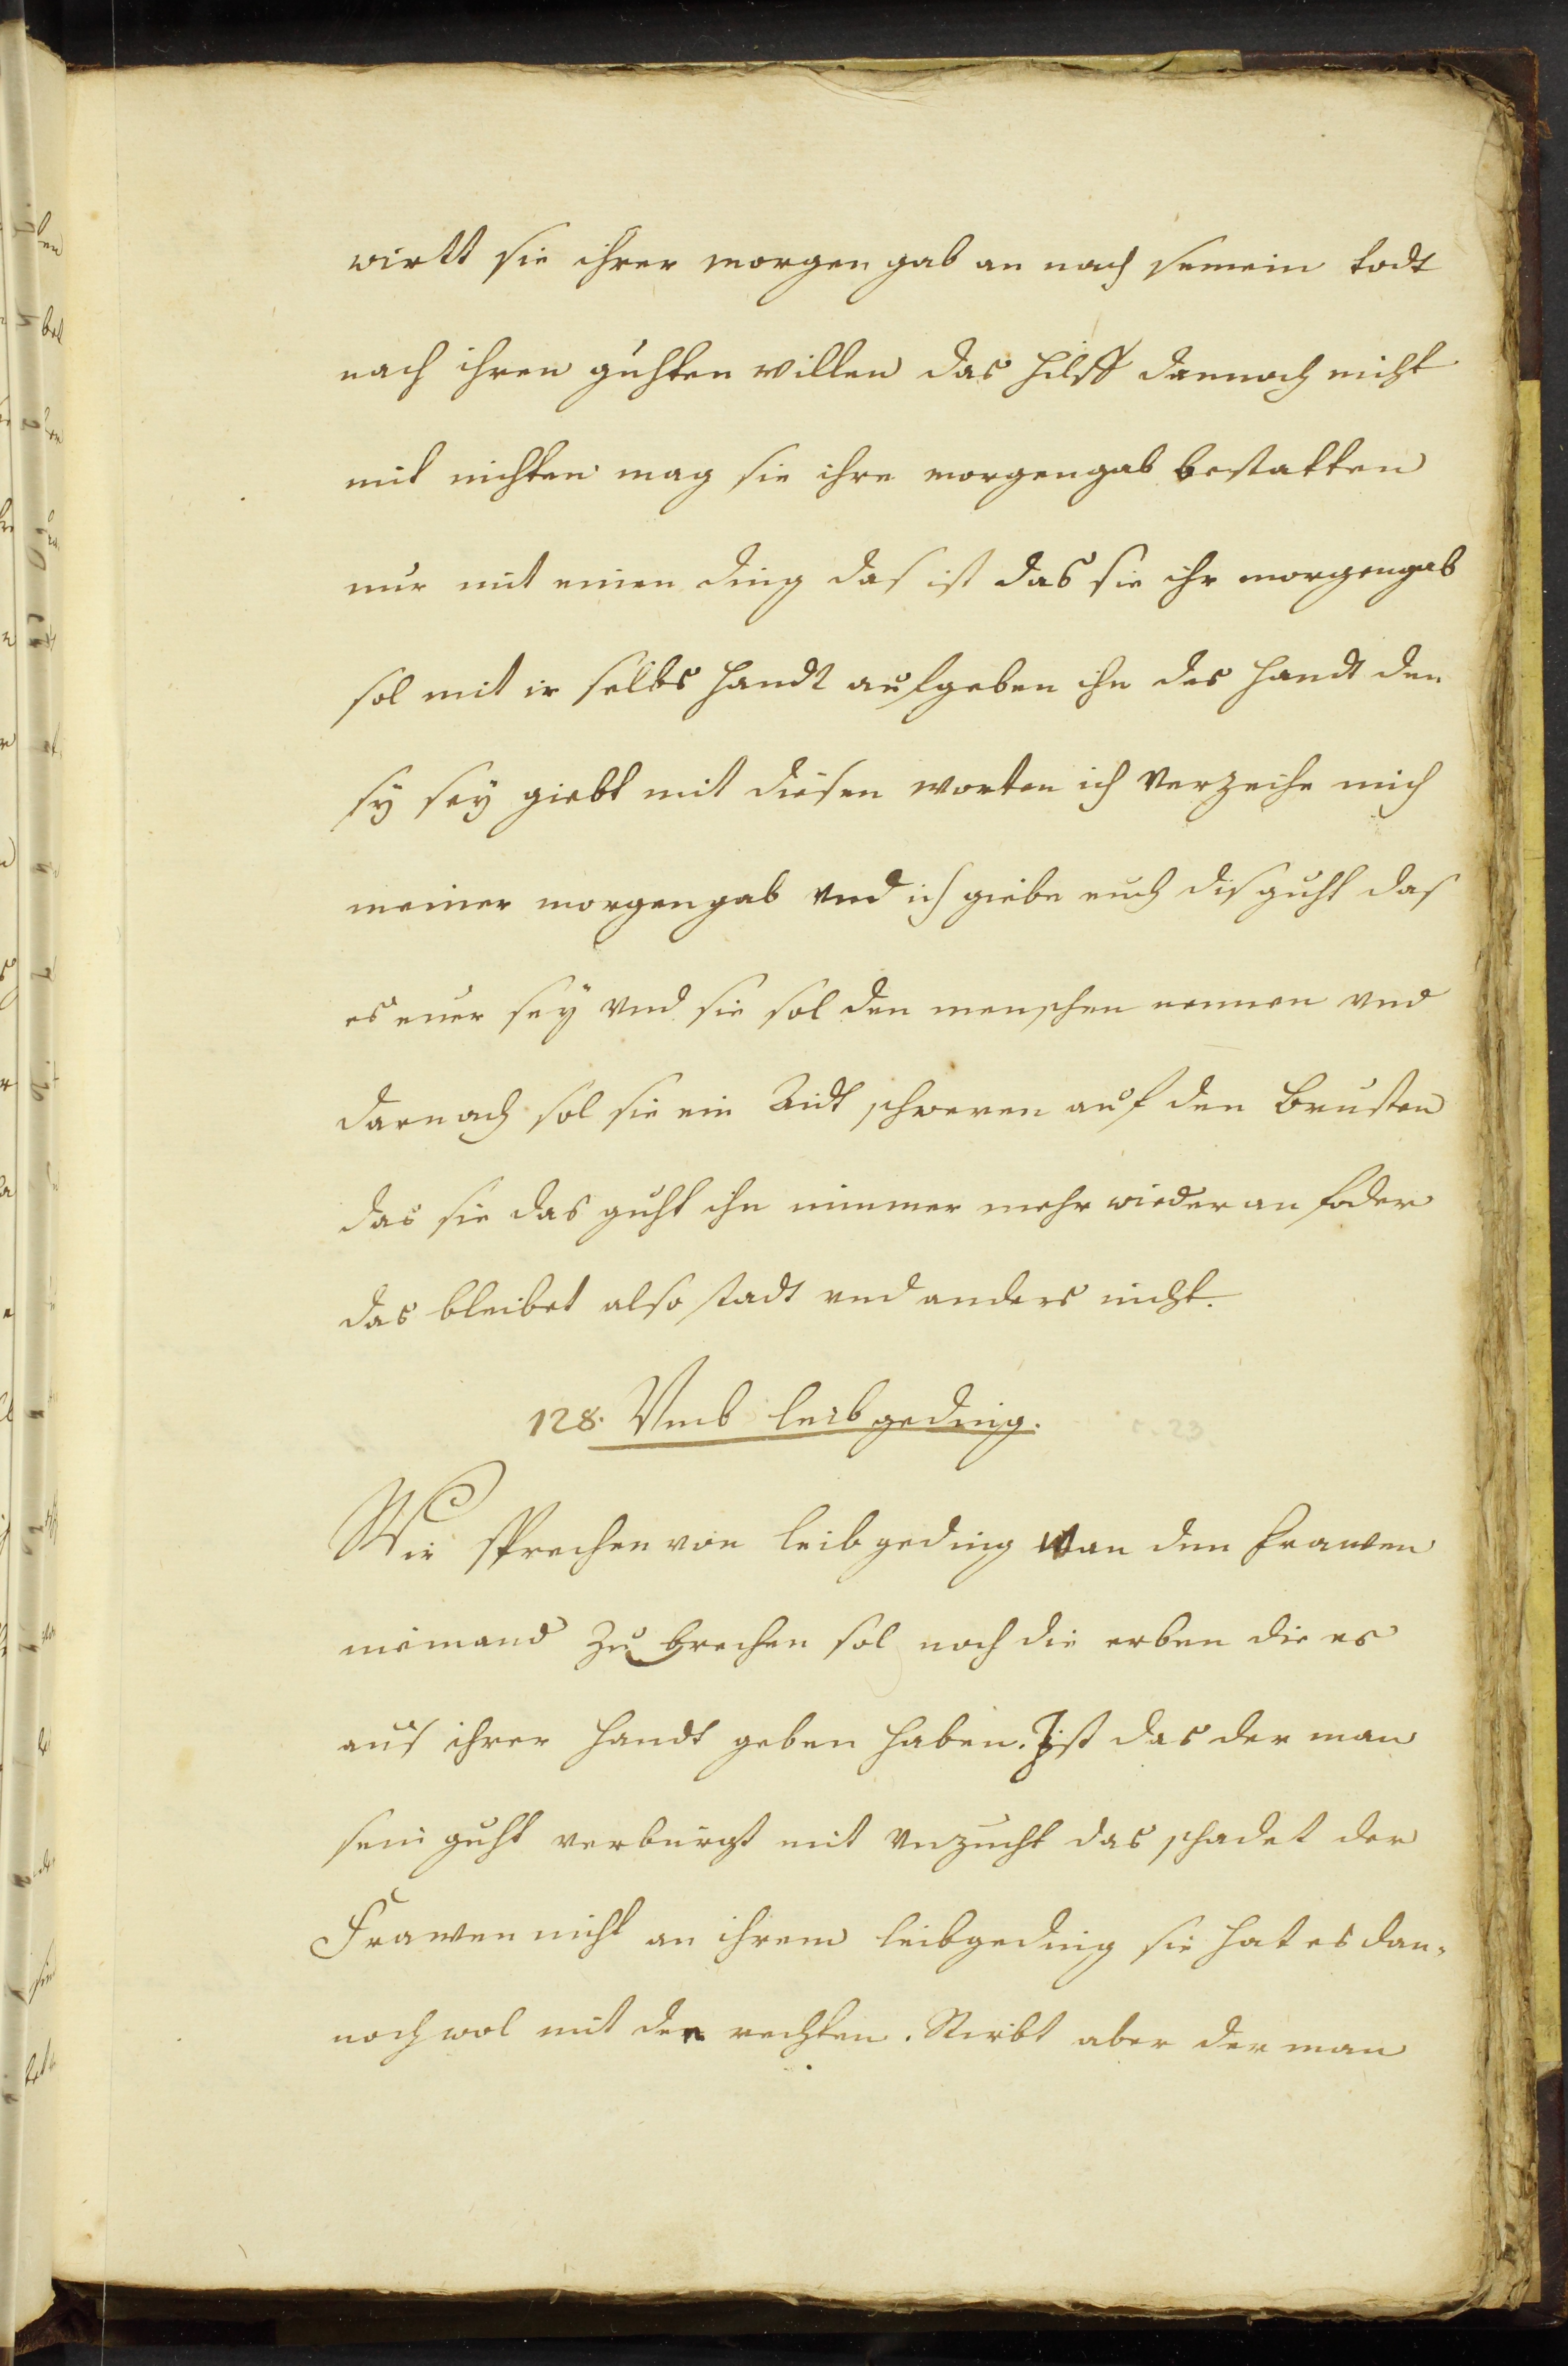 wirtt sie ihrer morgen gab an nach semein todt
nach ihren guhten willen das hilff dennoch nicht
mit nichten mag sie ihre morgengab bestatten
nur mit einen ding das ist das sie ihr morgengab
sol mit ir selbs handt aufgeben ihn des handt den
sy sey giebt mit diesen worten ich verzeihe mich
meiner morgengab vnd ich giebe euch dis guht das
es euer sey vnd sie sol den menschen nennen vnd
darnach sol sie ein Aidt schweren auf den Brusten
das sie das guht ihn nimmer mehr wieder an foder
das bleibet also stadt vnd anders nicht.
128. Vmb leibgeding.
c. 23.
Wir sprechen von leibgeding wan den frawen
niemand zu brechen sol noch die erben die es
aus ihrer handt geben haben. Ist das der man
sein guht verburgt mit vnzucht das schadet der
Frawen nicht an ihrem leibgeding sie hat es dan-
noch wol mit den rechten. Stirbt aber der man